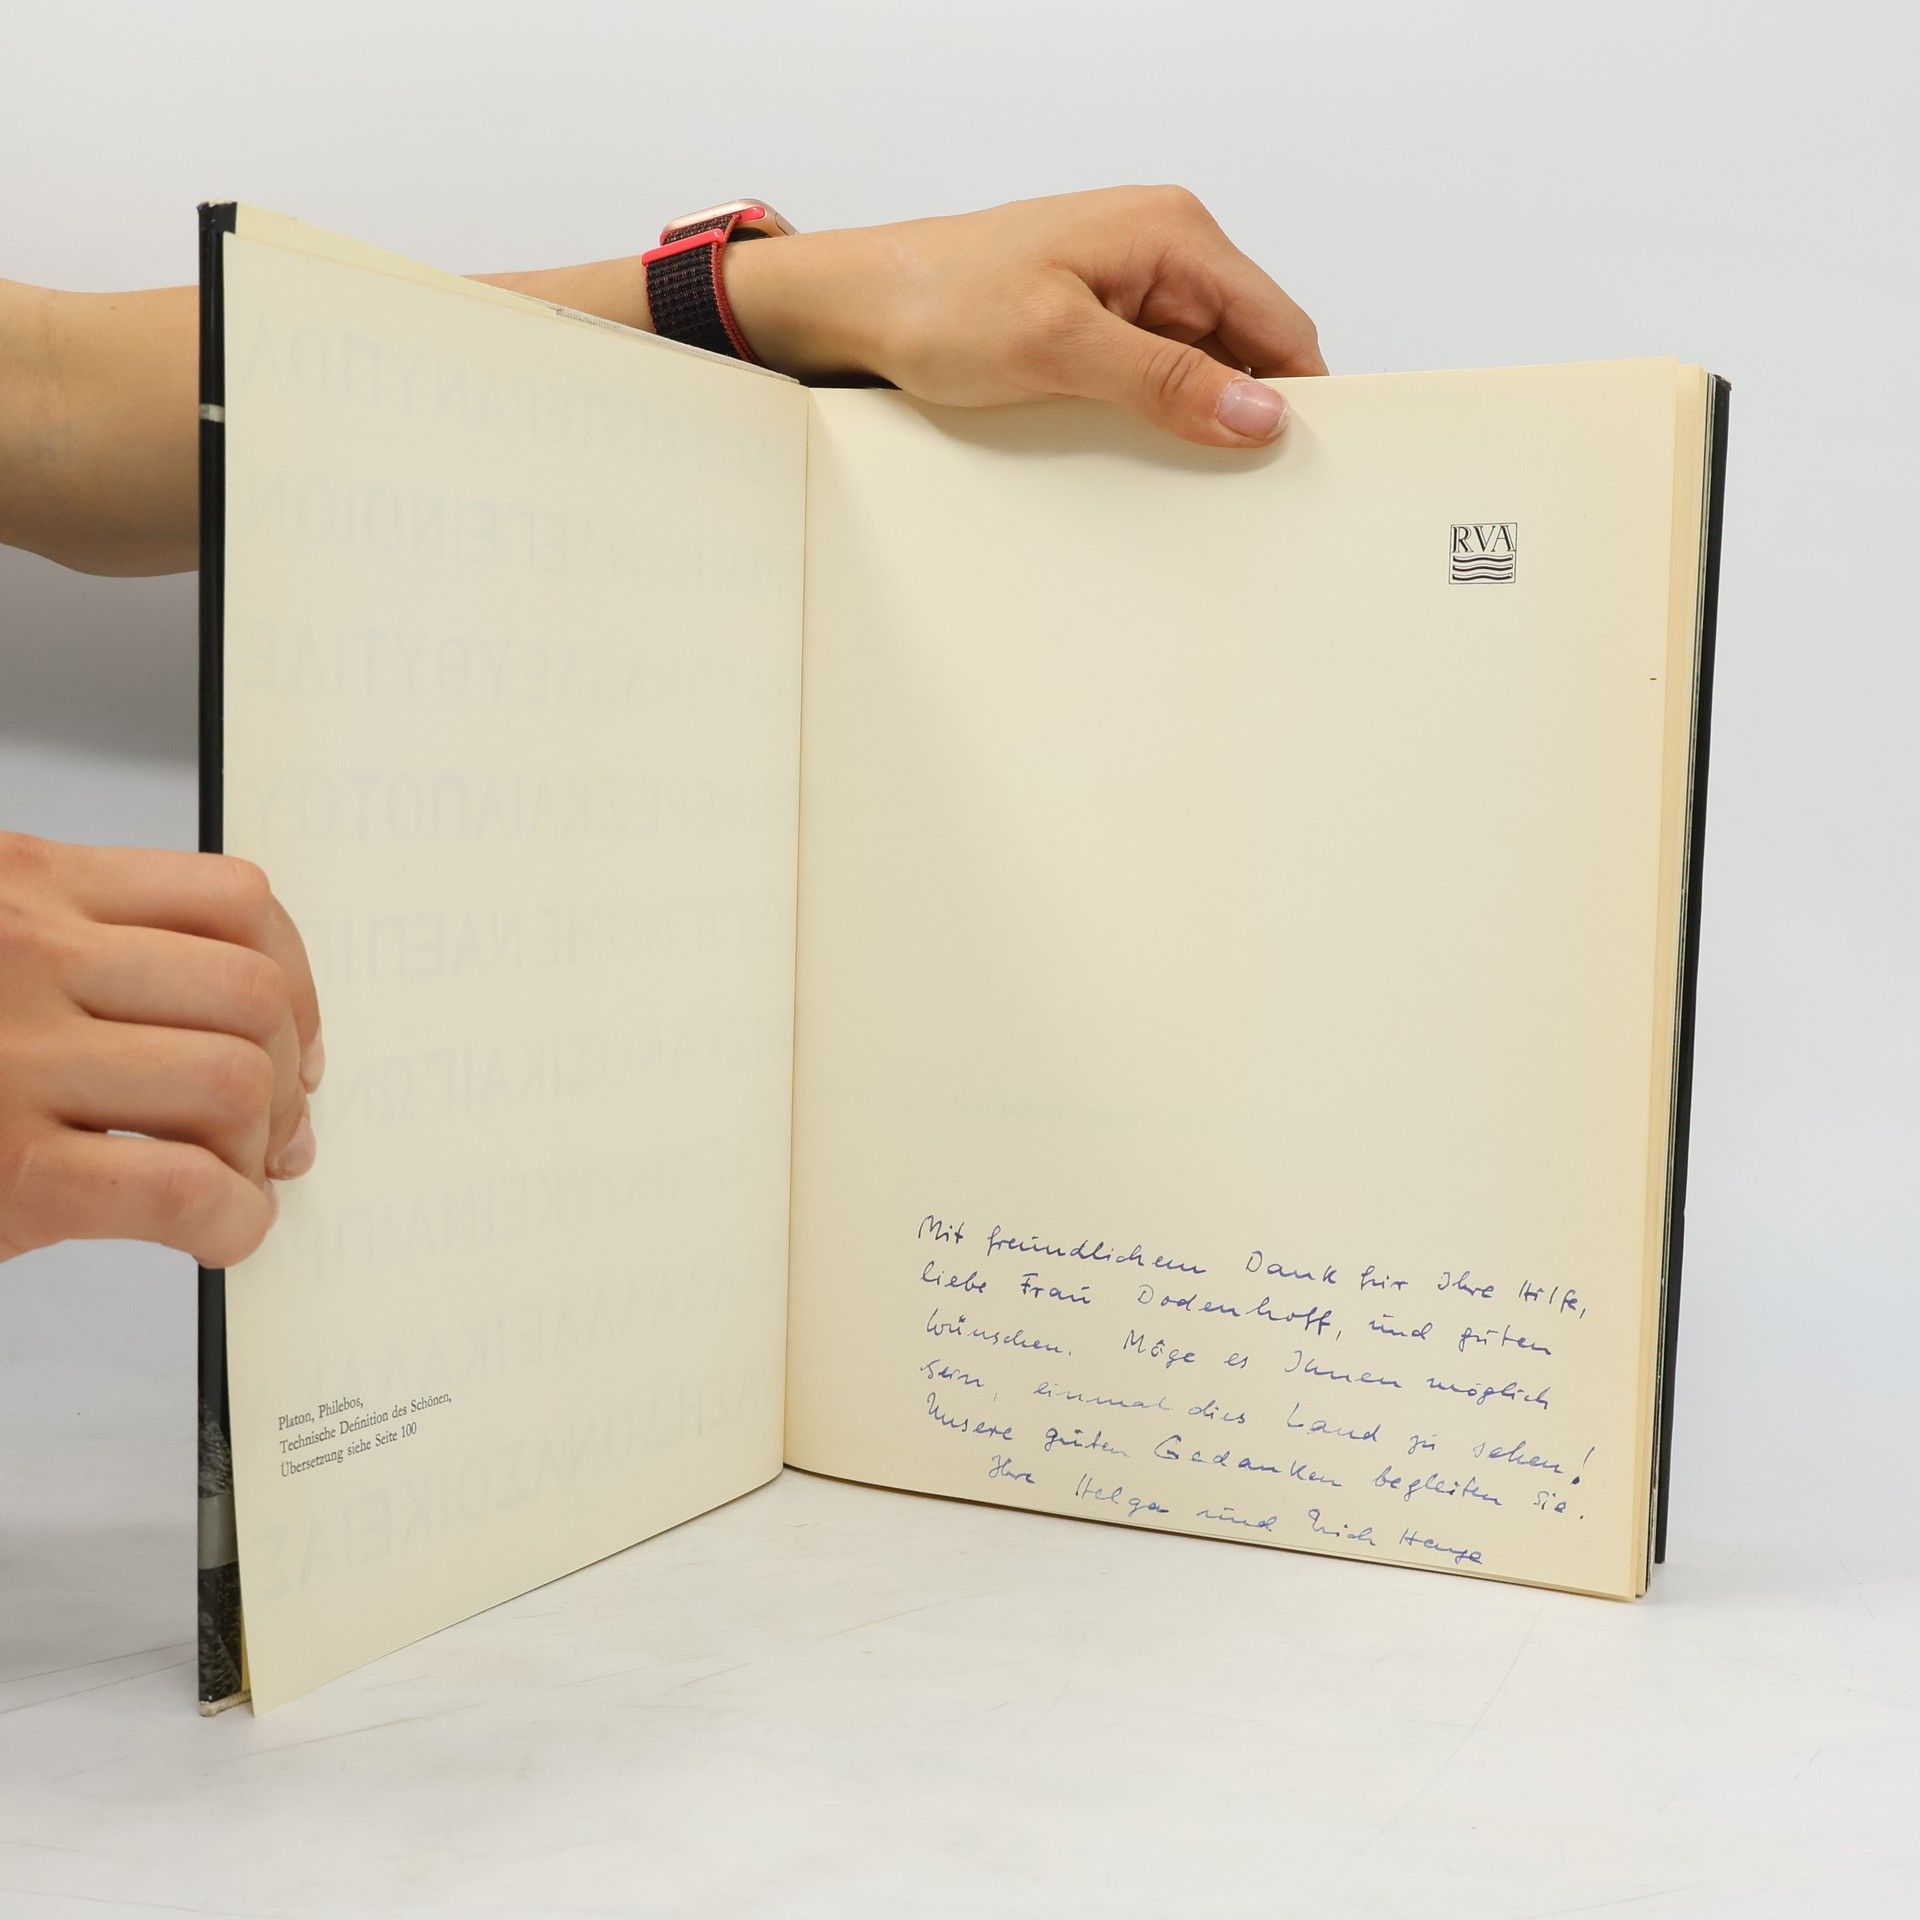 Platon, Philebos,
Technische Definition des Schönen,
Übersetzung siehe Seite 100
RVA
Mit freundlichem Dank für Ihre Hilfe,
liebe Frau Dodenhoff, und guten
Wünschen. Möge es Ihnen möglich
sein, einmal dies Land zu sehen!
Unsere guten Gedanken begleiten Sie.
Ihre Helga und Erich